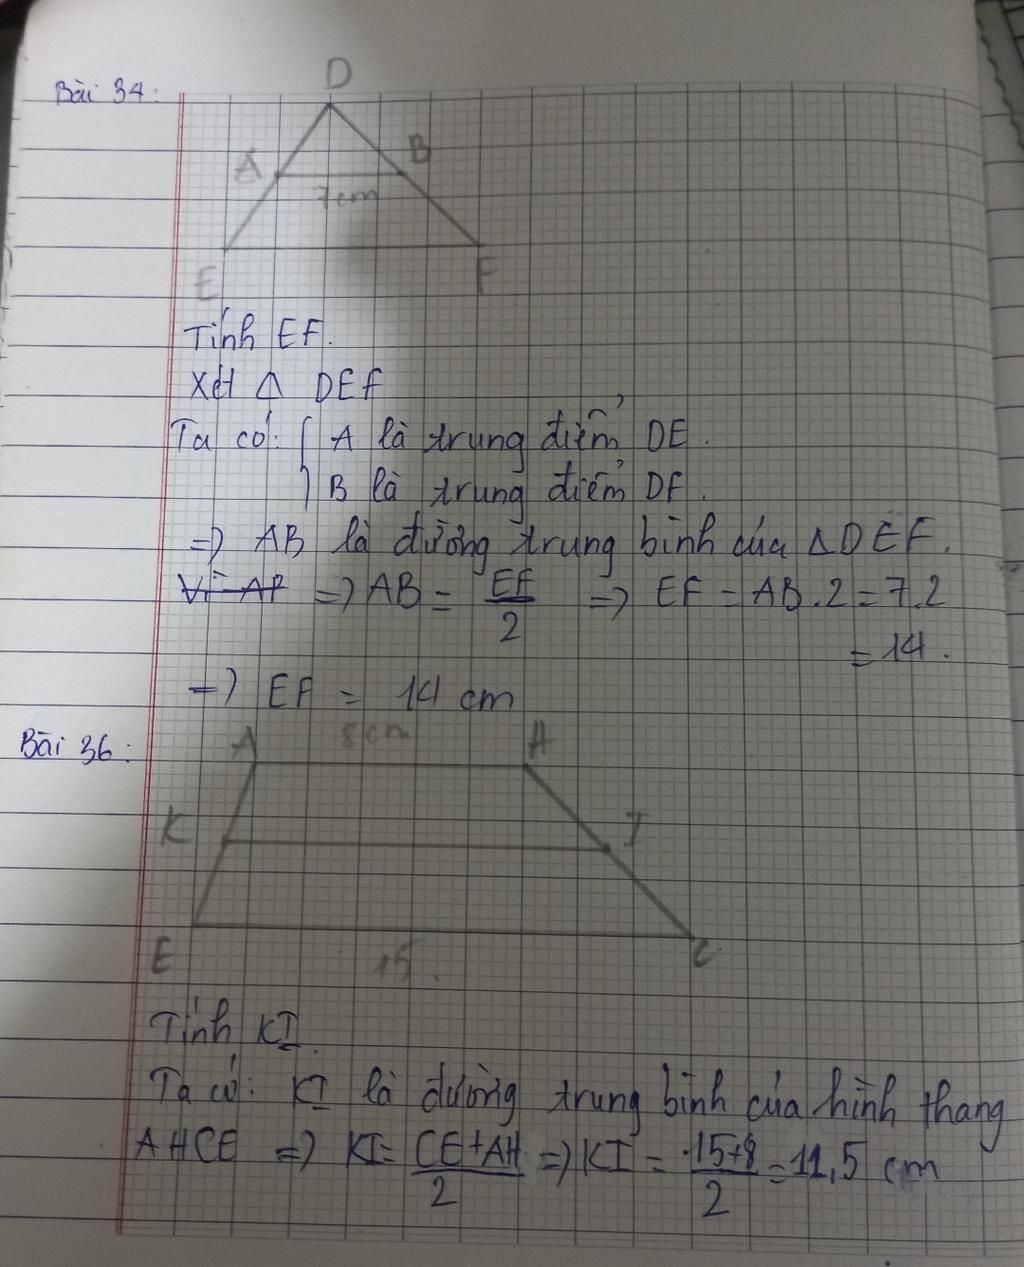 Bài 34:
D
A
B
7cm
E
F
Tính EF.
Xét Δ DEF
Ta có: { A là trung điểm DE.
B là trung điểm DF.
=> AB là đường trung bình của ΔDEF.
Vì AB => AB = EF/2 => EF = AB.2 = 7.2
= 14.
=> EF = 14 cm
Bài 36:
A
8cm
H
K
I
E
15.
C
Tính KI.
Ta có: KI là đường trung bình của hình thang
AHCE => KI = CE+AH/2 => KI = 15+8/2 = 11,5 cm